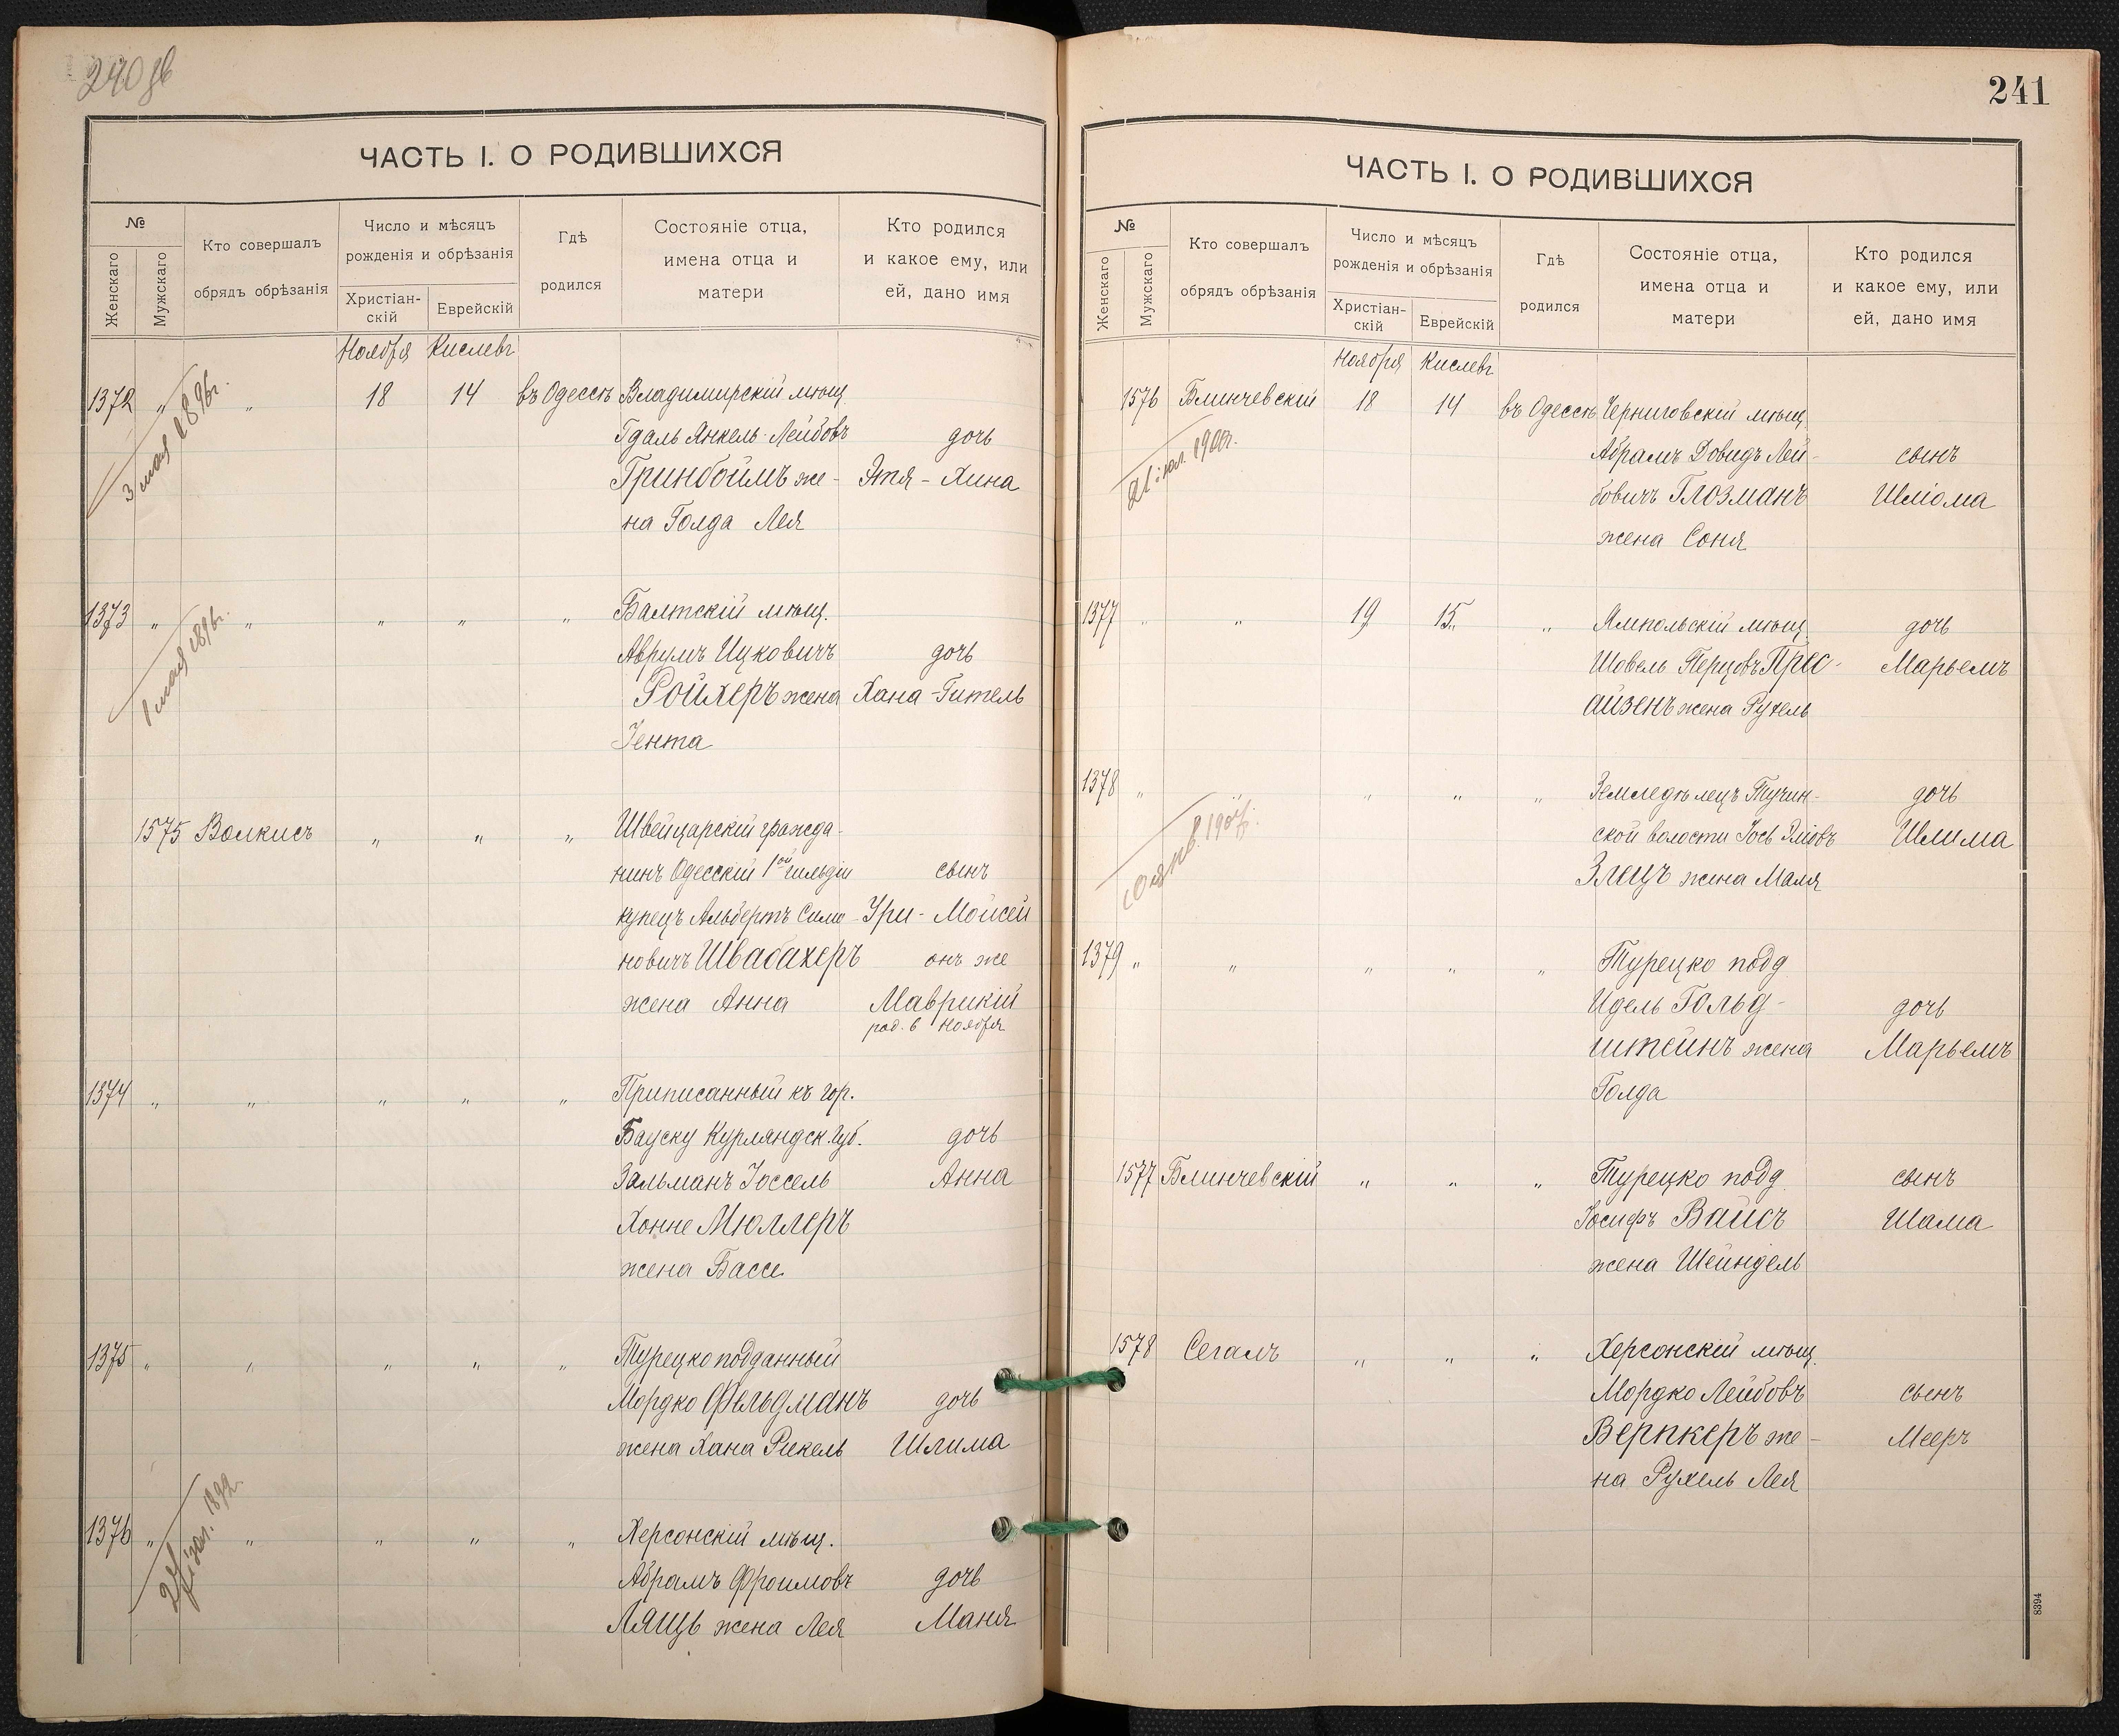 ЧАСТЬ I. О РОДИВШИХСЯ
№
Женскаго
Мужскаго
Кто совершалъ
обрядъ обрѣзанія
Число и мѣсяцъ
рожденія и обрѣзанія
Христіан-
скій
Еврейскій
Гдѣ
родился
Состояніе отца,
имена отца и
матери
Кто родился
и какое ему, или
ей, дано имя
Ноября Кислевъ
1372 " " 18 14 въ Одессѣ Владимирскій мѣщ.
3 мая 1896г.
Гдаль Янкель-Лейбовъ дочь
Гринбоймъ же- Этя-Хина
на Голда Лея
1373 " " " " " Балтскій мѣщ.
1 мая 1896г.
Аврумъ Ицковичъ дочь
Ройхеръ жена Хана-Гитель
Іента
1575 Волкисъ " " " Швейцарскій гражда-
нинъ Одесскій 1ой гильдіи сынъ
купецъ Альбертъ Симо- Ури-Мойсей
новичъ Швабахеръ онъ же
жена Анна Маврикій
род. 6 Ноября
1374 " " " " " Приписанный къ гор.
Бауску Курляндск. губ. дочь
Зальманъ Іоссель Анна
Хонне Мюллеръ
жена Бассе
1375 " " " " " Турецкоподданный
Мордко Фельдманъ дочь
жена Хана Рекель Шлима
1376 " " " " " Херсонскій мѣщ.
Абрамъ Фроимовъ дочь
Лящъ жена Лея Маня
241
ЧАСТЬ I. О РОДИВШИХСЯ
№
Женскаго
Мужскаго
Кто совершалъ
обрядъ обрѣзанія
Число и мѣсяцъ
рожденія и обрѣзанія
Христіан-
скій
Еврейскій
Гдѣ
родился
Состояніе отца,
имена отца и
матери
Кто родился
и какое ему, или
ей, дано имя
Ноября Кислевъ
1576 Блинчевскій 18 14 въ Одессѣ Черниговскій мѣщ.
Абрамъ Довидъ Лей- сынъ
бовичъ Глозманъ Шліома
жена Соня
1377 " " 19 15 " Ямпольскій мѣщ. дочь
Шовель Перцовъ Прес- Марьемъ
айзенъ жена Рухель
1378 " " " " " Земледѣлецъ дочь
ской волости Іось Эліовъ Шлима
Злецъ жена Маля
1379 " " " " " Турецко подд.
Идель Гольд- дочь
штейнъ жена Марьемъ
Голда
1577 Блинчевскій " " " Турецко подд. сынъ
Іосифъ Вайсъ Шама
жена Шейндель
1578 Сегалъ " " " Херсонскій мѣщ.
Мордко Лейбовъ сынъ
Верпкеръ же- Мееръ
на Рухель Лея
8394